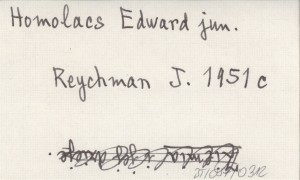 Homolacs Edward jun.
Reychman J. 1951 c